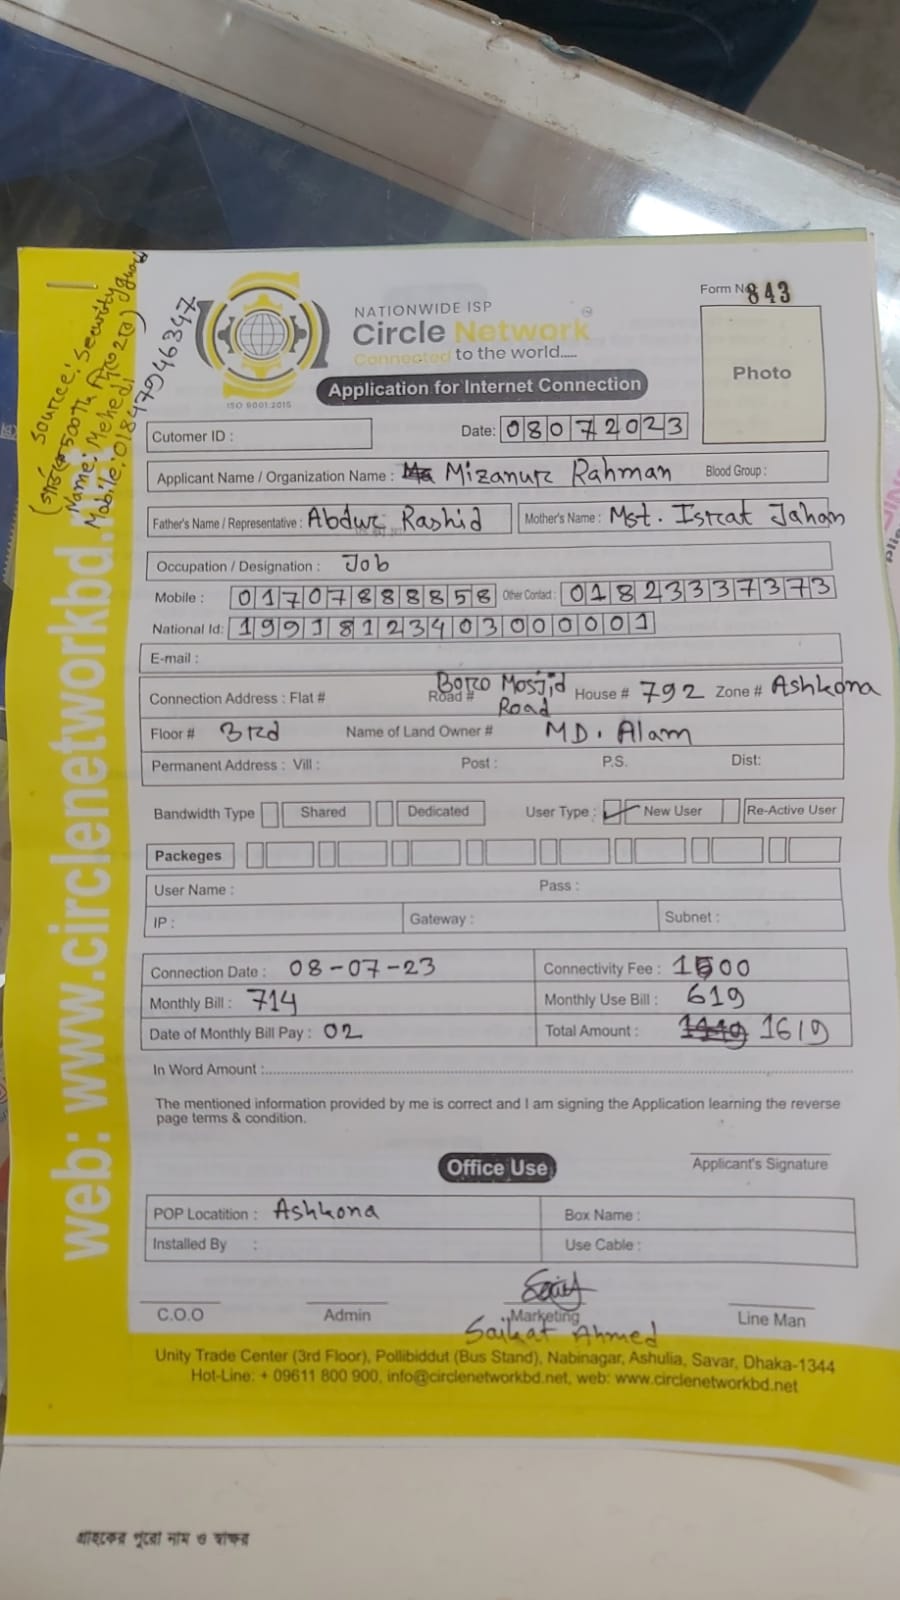 Source: Security guard
Name: Mehedi
Mobile: 01847946347
Form No 843
NATIONWIDE ISP
Circle Network
Connected to the world.....
ISO 9001:2015
Application for Internet Connection
Photo
Cutomer ID :
Date: 08072023
Applicant Name / Organization Name : Mizanur Rahman Blood Group :
Father's Name / Representative : Abdur Rashid Mother's Name : Mst. Israt Jahan
Occupation / Designation : Job
Mobile : 01707888858 Other Contact : 01823337373
National Id: 19918123403000001
E-mail :
Connection Address : Flat # Road # Boro Mosjid Road House # 792 Zone # Ashkona
Floor # 3rd Name of Land Owner # MD. Alam
Permanent Address : Vill : Post : P.S. Dist:
Bandwidth Type Shared Dedicated User Type : New User Re-Active User
Packeges
User Name : Pass :
IP : Gateway : Subnet :
Connection Date : 08-07-23 Connectivity Fee : 1000
Monthly Bill : 714 Monthly Use Bill : 619
Date of Monthly Bill Pay : 02 Total Amount : 1619
In Word Amount :
The mentioned information provided by me is correct and I am signing the Application learning the reverse
page terms & condition.
Applicant's Signature
Office Use
POP Locatition : Ashkona Box Name :
Installed By : Use Cable :
C.O.O Admin Marketing Line Man
Saikat Ahmed
Unity Trade Center (3rd Floor), Pollibiddut (Bus Stand), Nabinagar, Ashulia, Savar, Dhaka-1344
Hot-Line: + 09611 800 900, info@circlenetworkbd.net, web: www.circlenetworkbd.net
web: www.circlenetworkbd.net
গ্রাহকের পুরো নাম ও স্বাক্ষর